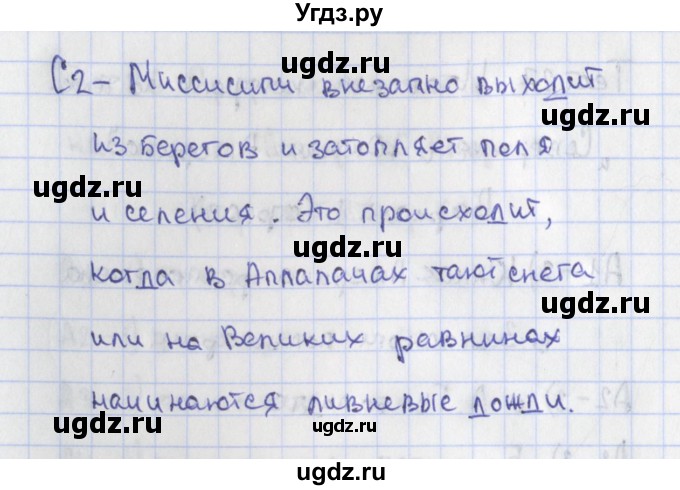 Угдз.ру
C2 - Миссисипи внезапно выходит
ugdz.ru ugdz.ru
из берегов и затопляет поля
ugdz.ru ugdz.ru
и селения. Это происходит,
ugdz.ru
когда в Аппалачах тают снега
ugdz.ru ugdz.ru
или на Великих равнинах
ugdz.ru
начинаются ливневые дожди.
ugdz.ru ugdz.ru
ugdz.ru